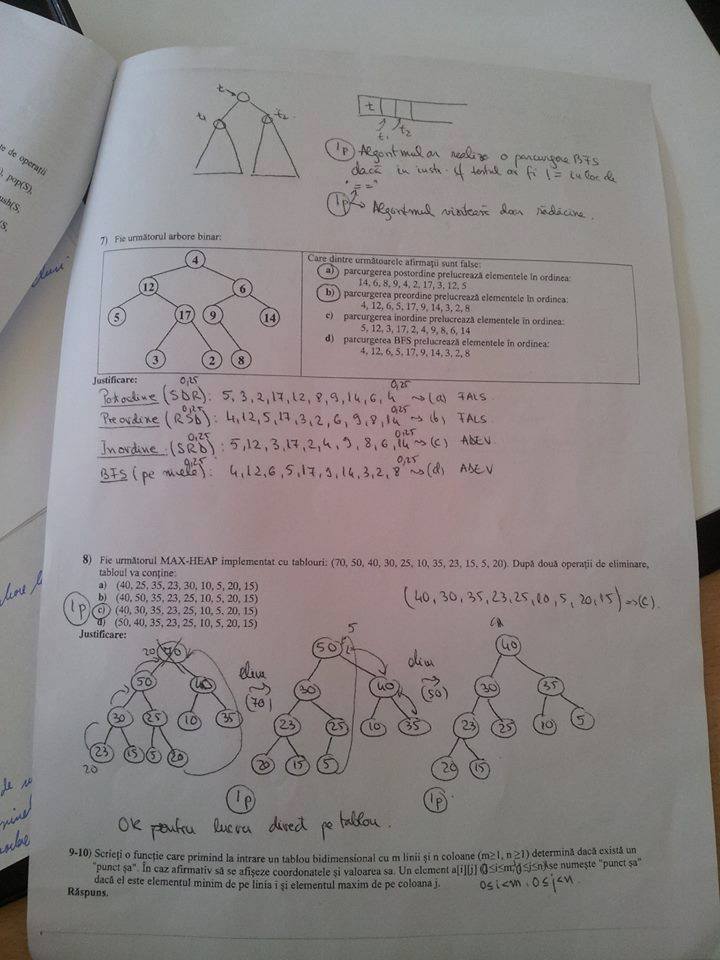 te de operații
), pop(S),
ush(S,
(S,
t
t1
t2
t
t1
t2
1p Algoritmul ar realiza o parcurgere BFS
dacă în instr. if testul ar fi != în loc de
"=="
1p Algoritmul vizitează doar rădăcina.
7) Fie următorul arbore binar:
4
12
6
5
17
9
14
3
2
8
Care dintre următoarele afirmații sunt false:
a) parcurgerea postordine prelucrează elementele în ordinea:
14, 6, 8, 9, 4, 2, 17, 3, 12, 5
b) parcurgerea preordine prelucrează elementele în ordinea:
4, 12, 6, 5, 17, 9, 14, 3, 2, 8
c) parcurgerea inordine prelucrează elementele în ordinea:
5, 12, 3, 17, 2, 4, 9, 8, 6, 14
d) parcurgerea BFS prelucrează elementele în ordinea:
4, 12, 6, 5, 17, 9, 14, 3, 2, 8
Justificare:
0,25 0,25
Postordine (SDR): 5, 3, 2, 17, 12, 8, 9, 14, 6, 4 (a) FALS
0,25 0,25
Preordine (RSD): 4, 12, 5, 17, 3, 2, 6, 9, 8, 14 (b) FALS
0,25 0,25
Inordine (SRD): 5, 12, 3, 17, 2, 4, 9, 8, 6, 14 (c) ADEV
0,25 0,25
BFS (pe nivele): 4, 12, 6, 5, 17, 9, 14, 3, 2, 8 (d) ADEV
8) Fie următorul MAX-HEAP implementat cu tablouri: (70, 50, 40, 30, 25, 10, 35, 23, 15, 5, 20). După două operații de eliminare,
tabloul va conține:
a) (40, 25, 35, 23, 30, 10, 5, 20, 15)
b) (40, 50, 35, 23, 25, 10, 5, 20, 15)
1p c) (40, 30, 35, 23, 25, 10, 5, 20, 15)
d) (50, 40, 35, 23, 25, 10, 5, 20, 15)
(40, 30, 35, 23, 25, 10, 5, 20, 15) => (c).
Justificare:
20 70
50 40
30 25 10 35
23 15 5 20
20
elim
(70)
5
50
30 40
23 25 10 35
20 15 5
1p
elim
(50)
40
30 35
23 25 10 5
20 15
1p
OK pentru lucru direct pe tablou.
9-10) Scrieți o funcție care primind la intrare un tablou bidimensional cu m linii și n coloane (m≥1, n ≥1) determină dacă există un
"punct șa". În caz afirmativ să se afișeze coordonatele și valoarea sa. Un element a[i][j] se numește "punct șa"
dacă el este elementul minim de pe linia i și elementul maxim de pe coloana j.
0≤i<m, 0≤j<n.
Răspuns.